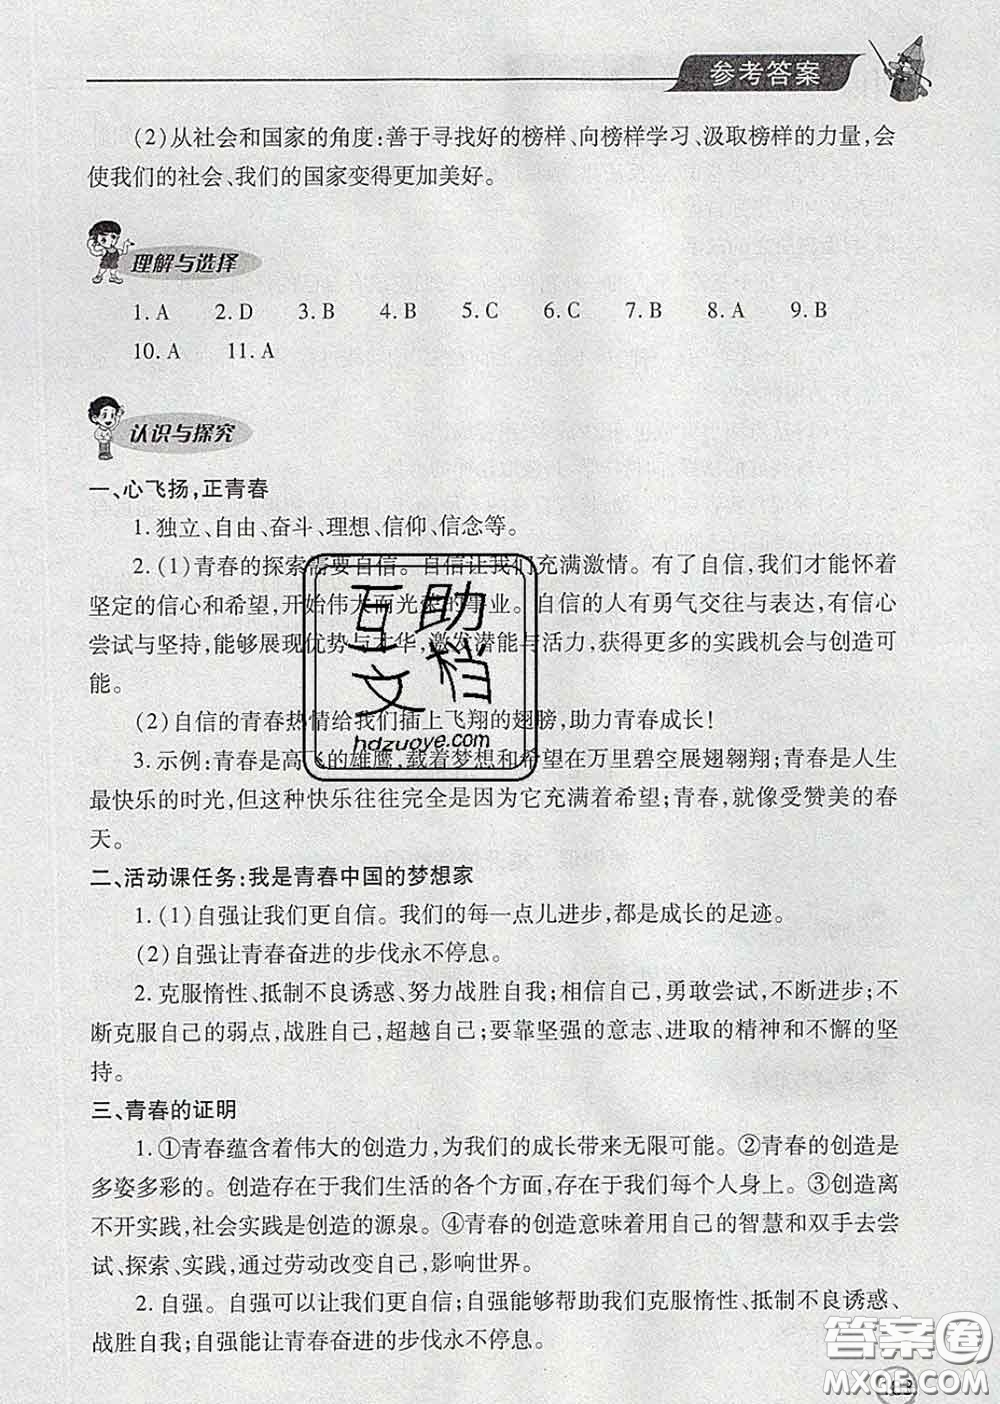 参考答案
(2)从社会和国家的角度:善于寻找好的榜样、向榜样学习、汲取榜样的力量,会
使我们的社会、我们的国家变得更加美好。
理解与选择
1. A 2. D 3. B 4. B 5. C 6. C 7. B 8. A 9. B
10. A 11. A
认识与探究
一、心飞扬,正青春
1. 独立、自由、奋斗、理想、信仰、信念等。
2. (1)青春的探索需要自信。自信让我们充满激情。有了自信,我们才能怀着
坚定的信心和希望,开始伟大而光荣的事业。自信的人有勇气交往与表达,有信心
尝试与坚持,能够展现优势与才华,激发潜能与活力,获得更多的实践机会与创造可
能。
(2)自信的青春热情给我们插上飞翔的翅膀,助力青春成长!
3. 示例:青春是高飞的雄鹰,载着梦想和希望在万里碧空展翅翱翔;青春是人生
最快乐的时光,但这种快乐往往完全是因为它充满着希望;青春,就像受赞美的春
天。
二、活动课任务:我是青春中国的梦想家
1. (1)自强让我们更自信。我们的每一点儿进步,都是成长的足迹。
(2)自强让青春奋进的步伐永不停息。
2. 克服惰性、抵制不良诱惑、努力战胜自我;相信自己,勇敢尝试,不断进步;不
断克服自己的弱点,战胜自己,超越自己;要靠坚强的意志、进取的精神和不懈的坚
持。
三、青春的证明
1. ①青春蕴含着伟大的创造力,为我们的成长带来无限可能。②青春的创造是
多姿多彩的。创造存在于我们生活的各个方面,存在于我们每个人身上。③创造离
不开实践,社会实践是创造的源泉。④青春的创造意味着用自己的智慧和双手去尝
试、探索、实践,通过劳动改变自己,影响世界。
2. 自强。自强可以让我们更自信;自强能够帮助我们克服惰性、抵制不良诱惑、
战胜自我;自强能让青春奋进的步伐永不停息。
互助
文档
hdzuoye.com
答案卷
MXQE.COM